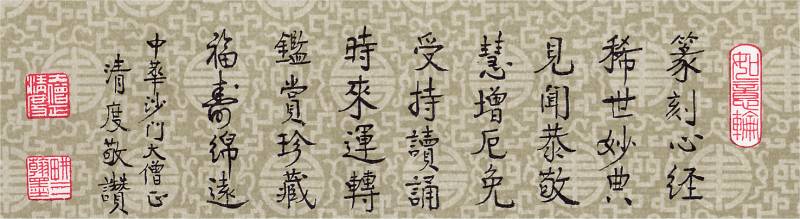 如意輪
篆刻心経
稀世妙典
見聞恭敬
慧增厄免
受持讀誦
時來運轉
鑑賞珍藏
福壽綿遠
中華沙门大僧正
清度敬讚